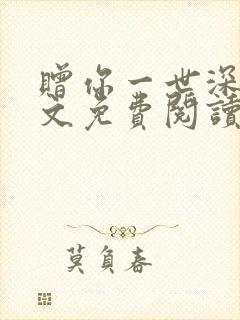 赠你一世深
文免費閱讀
莫負春